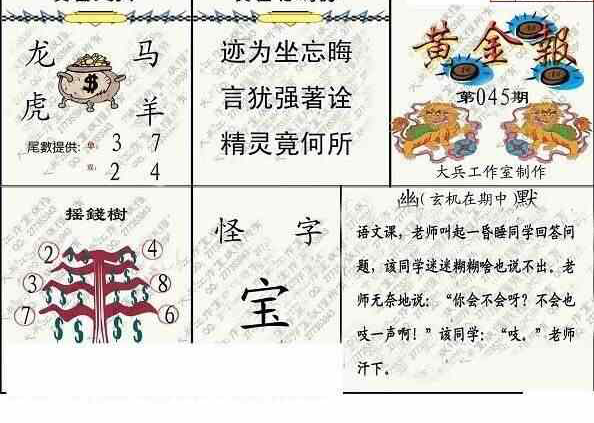 龙 马
虎 羊
尾數提供: 单: 3 7
双: 2 4
迹为坐忘晦
言犹强著诠
精灵竟何所
黄金報
第045期
大兵工作室制作
摇錢樹
2 4
3 8
7 6
怪 字
宝
幽(玄机在期中)默
语文课，老师叫起一昏睡同学回答问
题，该同学迷迷糊糊啥也说不出。老
师无奈地说：“你会不会呀？不会也
吱一声啊！”该同学：“吱。”老师
汗下。